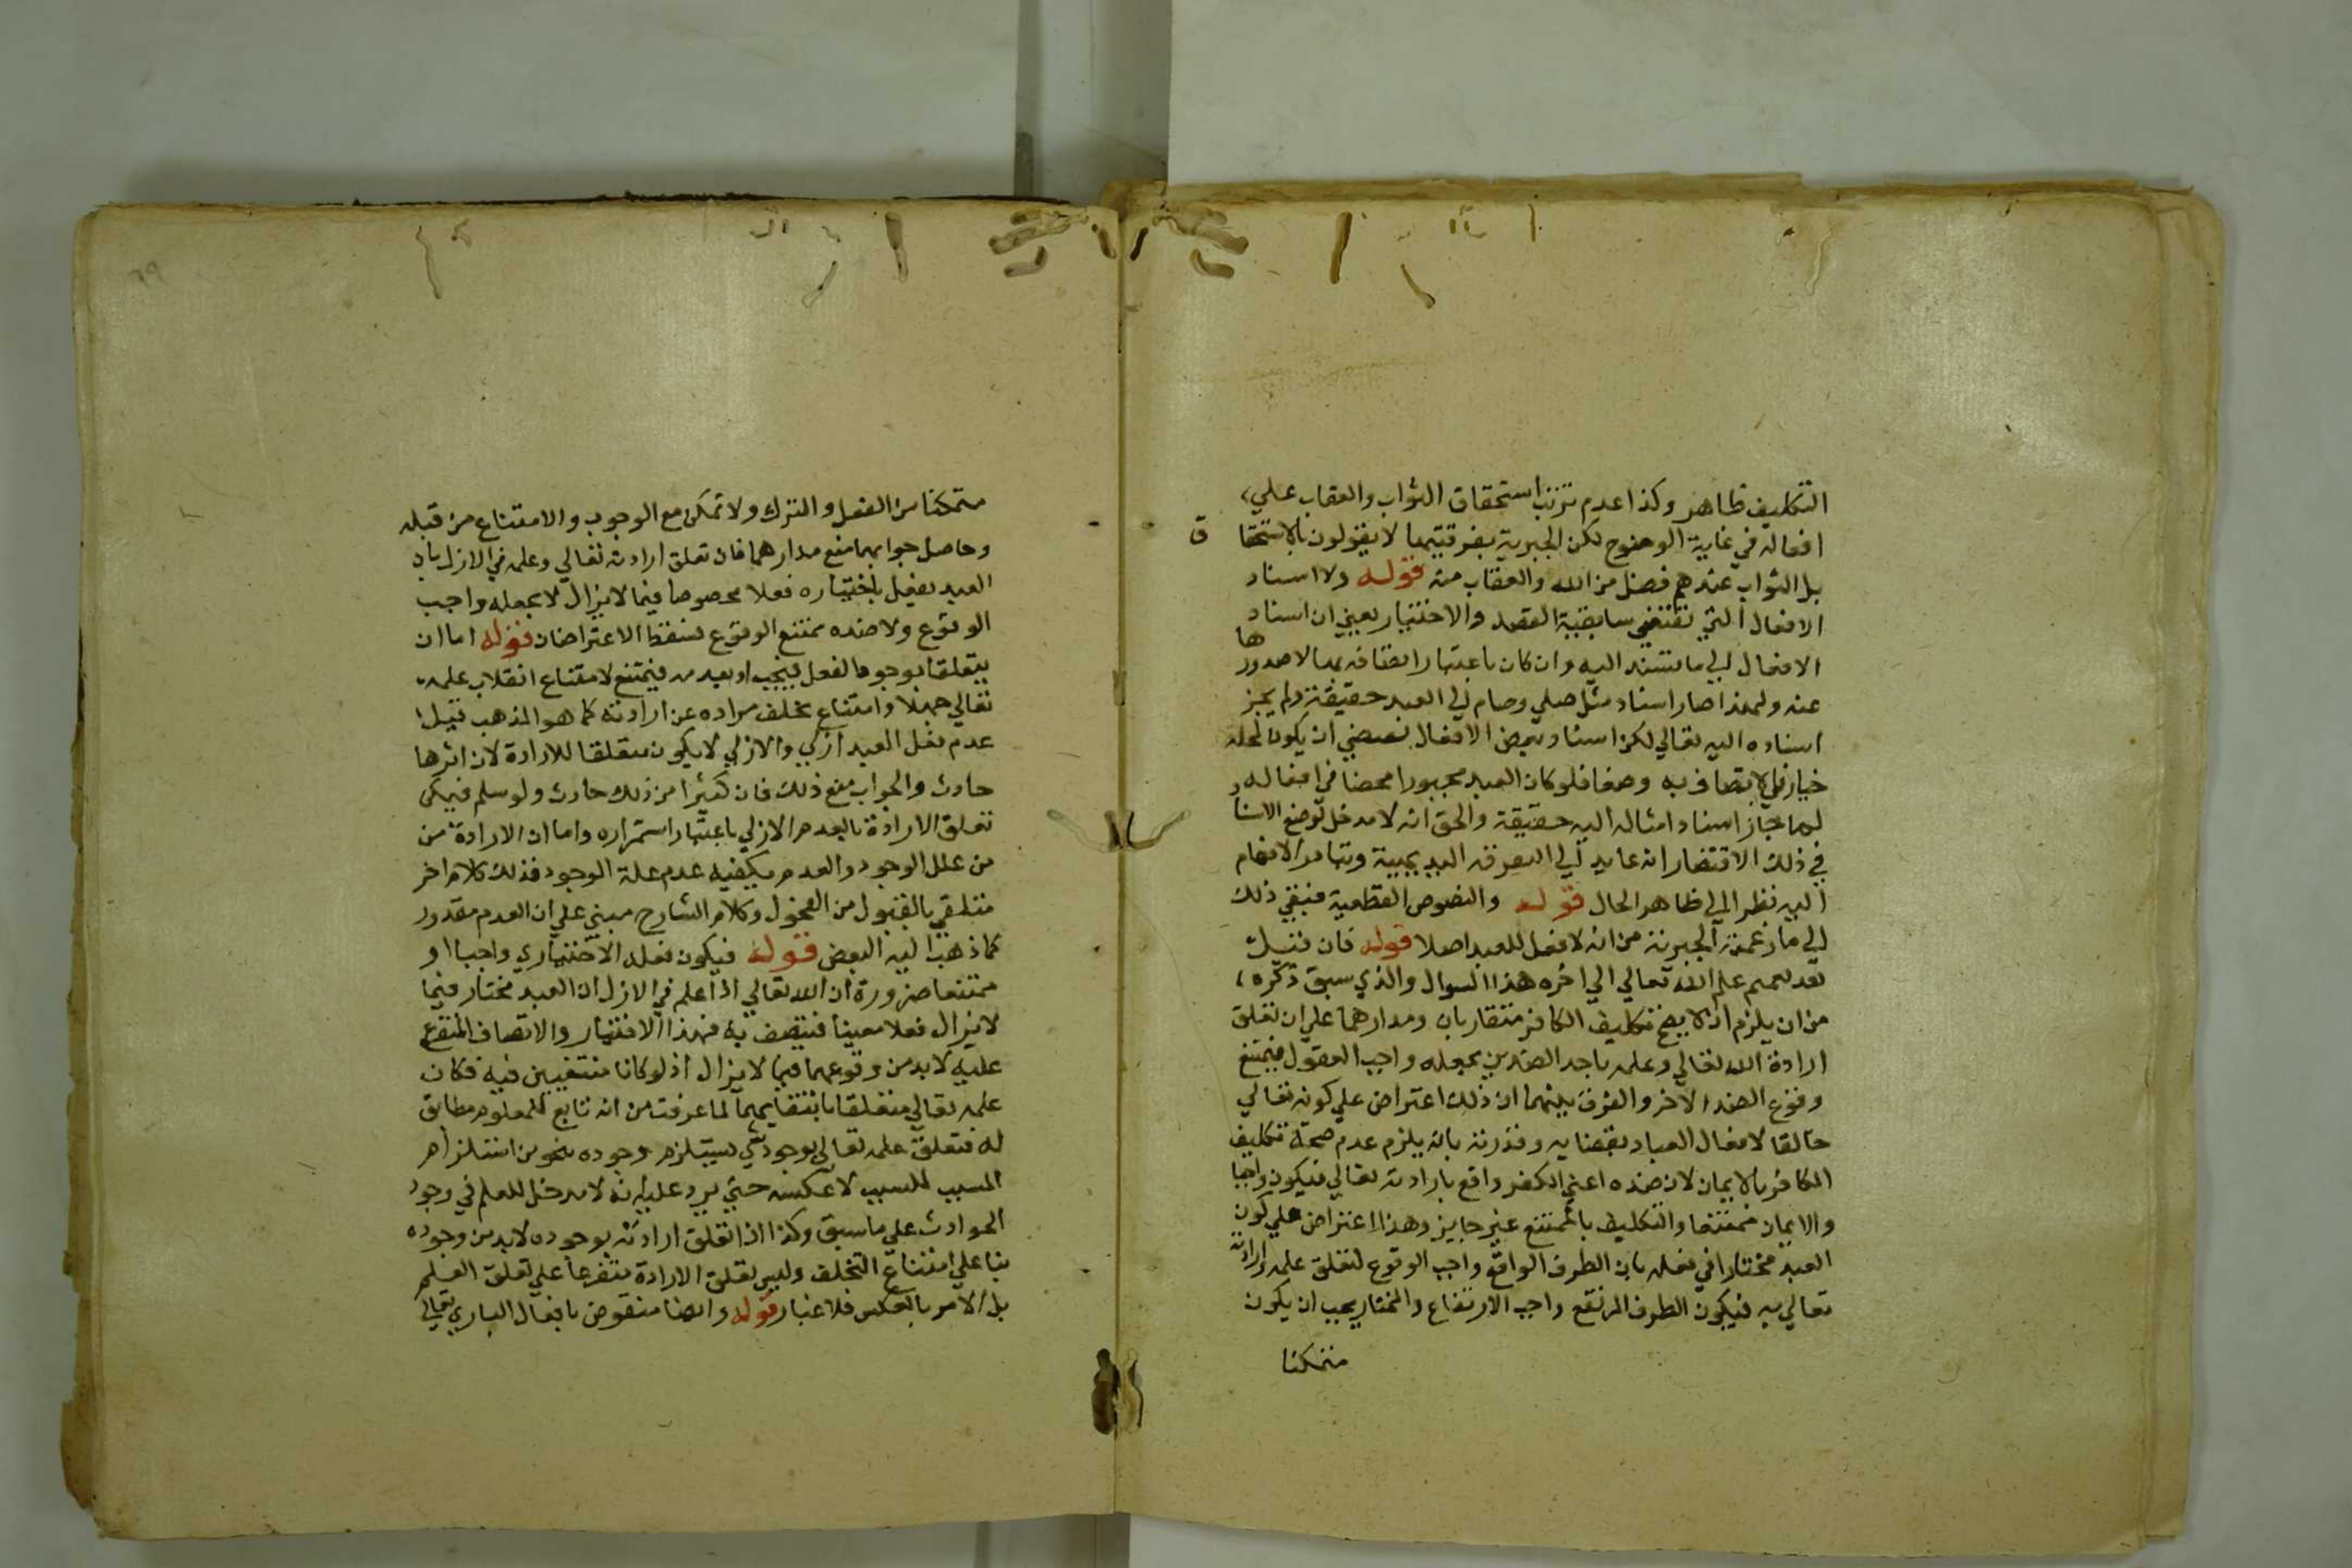 التكليف ظاهر وكذا عدم ترتب استحقاق الثواب والعقاب علي
افعاله في غاية الوضوح لكن الجبرية بفرقتيها لا يقولون بالاستحقا
ق
بل الثواب عندهم فضل من الله والعقاب منه قوله ولا اسناد
الافعال التي تقتضي سابقية القصد والاختيار يعني ان اسناد
الافعال الي ما يستند اليه وان كان باعتبار اتصافه بها لا صدور
ها
عنه ولهذا صار اسناد مثل صلي وصام الي العبد حقيقة ولم يجز
اسناده اليه تعالي لكن اسناد بعض الافعال يقتضي ان يكون لمحله
في الاتصاف به وصفا فلو كان العبد مجبورا محضا في افعاله
لما جاز اسناد امثاله اليه حقيقة والحق انه لا مدخل لوضع الاسنا
د
في ذلك الاقتضا انه عايد الي
اليه نظرا الي ظاهر الحال قوله والنصوص القطعية فنبقي ذلك
الي ما زعمته الجبرية من انه لا فعل للعبد اصلا قوله فان قيل
بعد تعميم علم الله تعالي الي اخره هذا السوال والذي سبق ذكره
من ان يلزم ان لا يصح تكليف الكافر متقاربان ومدارهما علي ان تعلق
ارادة الله تعالي وعلمه باحد الضدين يجعله واجب فيمتنع
وقوع الضد الاخر والفرق بينهما ان ذلك اعتراض علي كونه تعالي
خالقا لافعال العباد بقضايه وقدرته بانه يلزم عدم صحة تكليف
الكافر بالايمان لان ضده اعني الكفر واقع بارادته تعالي فيكون واجبا
والايمان ممتنعا والتكليف بالممتنع غير جايز وهذا اعتراض علي كون
العبد مختارا في فعله بان الطرف الواقع واجب الوقوع لتعلق علمه وارادته
تعالي به فيكون الطرف المرتفع واجب الارتفاع والمختار يجب ان يكون
متمكنا
٦٩
متمكنا من الفعل والترك ولا تمكن مع الوجوب والامتناع من قبله
وحاصل جوابهما منع مدارهما فان تعلق ارادته تعالي وعلمه في الازل بان
العبد يفعل باختياره فعلا مخصوصا فيما لا يزال لا يجعله واجب
الوقوع ولا ضده ممتنع الوقوع فسقط الاعتراضان قوله اما ان
يتعلقا بوجود الفعل فيجب او بعدمه فيمتنع لامتناع انقلاب علمه
تعالي جهلا وامتناع تخلف مراده عن ارادته كما هو المذهب قيل
عدم فعل العبد ازلي والازلي لا يكون متعلقا للارادة لان اثرها
حادث والجواب منع ذلك فان كثيرا من ذلك حادث ولو سلم فيمكن
تعلق الارادة بالعدم الازلي باعتبار استمراره واما ان الارادة من
من علل الوجود والعدم يكفيه عدم علة الوجود فذلك كلام اخر
متلقي بالقبول من الفحول وكلام الشارح مبني علي ان العدم مقدور
كما ذهب اليه البعض قوله فيكون فعله الاختياري واجبا او
ممتنعا ضرورة ان الله تعالي اذا علم في الازل ان العبد مختار فيما
لا يزال فعلا معينا فيتصف به فهذا الاختيار والاتصاف المتفرع
عليه لا بد من وقوعهما فيما لا يزال اذ لو كانا منتفيين فيه فكان
علمه تعالي متعلقا بانتفايهما لما عرفت من انه تابع للمعلوم مطابق
له فتعلق علمه تعالي بوجود شي يستلزم وجوده نحو من استلزام
المسبب للسبب لا عكسه حتي يرد عليه انه لا مدخل للعلم في وجود
الحوادث علي ما سبق وكذا اذا تعلق ارادته بوجوده لا بد من وجوده
بنا علي امتناع التخلف وليس تعلق الارادة متفرعا علي تعلق العلم
بل الامر بالعكس فلا غبار قوله وايضا منقوض بافعال الباري تعالي